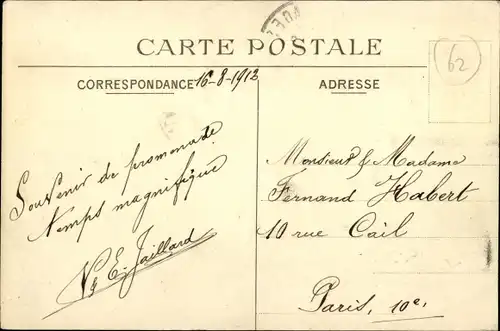 CARTE POSTALE
CORRESPONDANCE 16-8-1912
ADRESSE
62
Souvenir de promenade
Temps magnifique
E. Jaillard
Monsieur & Madame
Fernand Habert
10 rue Cail
Paris, 10e.